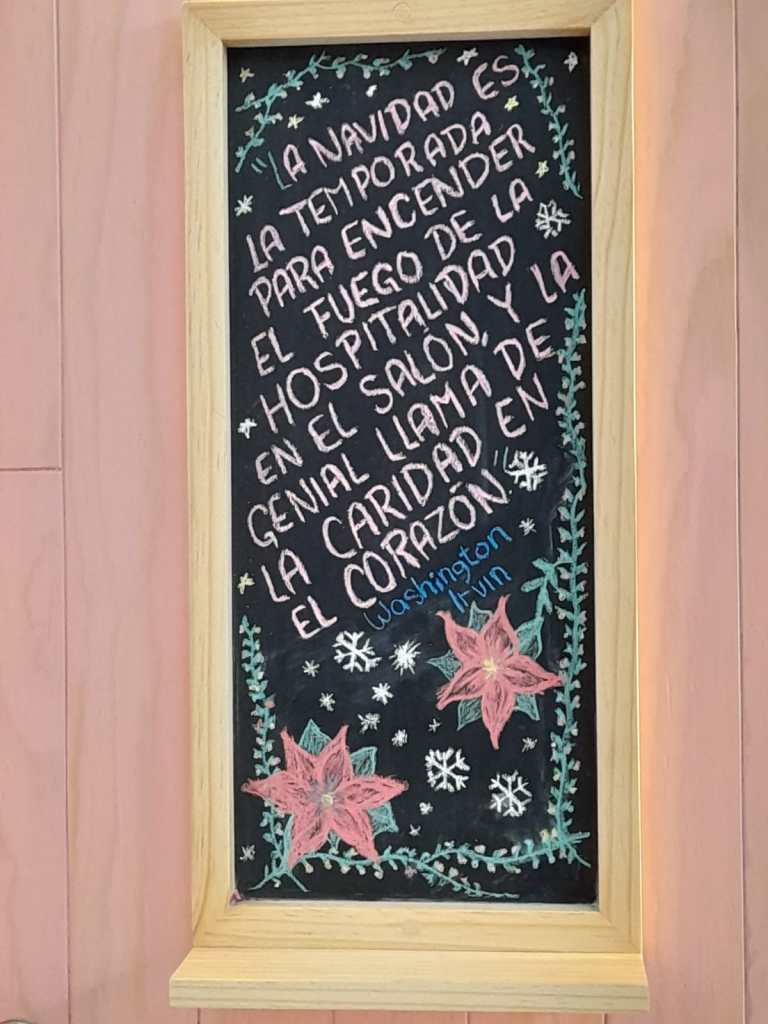 "LA NAVIDAD ES
LA TEMPORADA
PARA ENCENDER
EL FUEGO DE LA
HOSPITALIDAD
EN EL SALÓN, Y LA
GENIAL LLAMA DE
LA CARIDAD EN
EL CORAZÓN"
Washington
Irvin